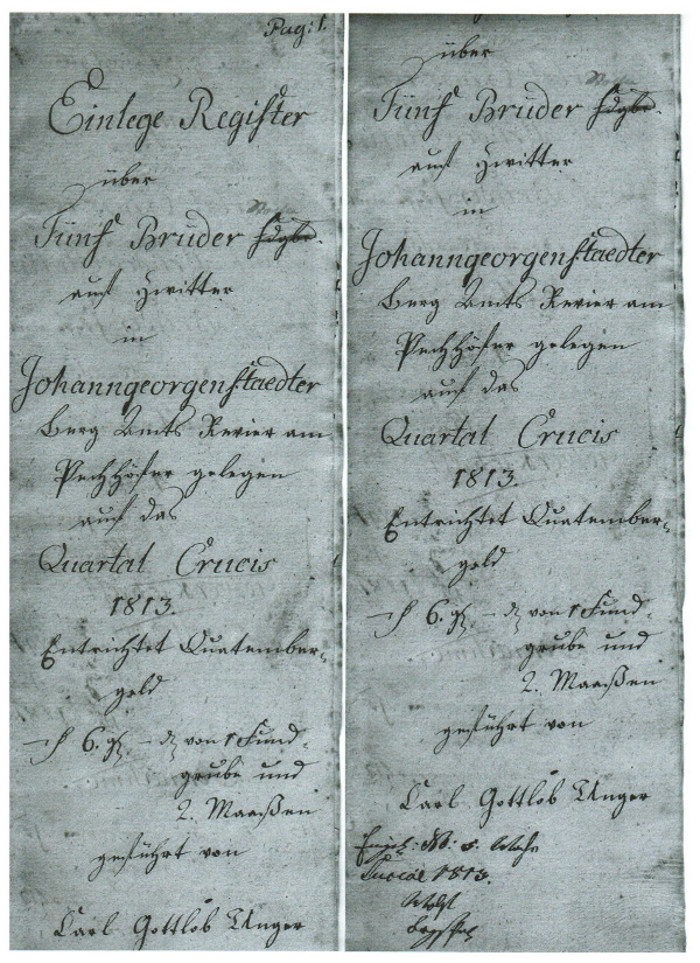 Pag: 1.
Einlege Register
über
Fünf Brüder
auf Zwitter
in
Johanngeorgenstaedter
Berg Amts Revier am
Pechhöfer gelegen
auf das
Quartal Crucis
1813.
Entrichtet Quatember-
geld
6. gl. – d. von 1 Fund-
grube und
2. Maaßen
geführt von
Carl Gottlob Unger
über
Fünf Brüder
auf Zwitter
in
Johanngeorgenstaedter
Berg Amts Revier am
Pechhöfer gelegen
auf das
Quartal Crucis
1813.
Entrichtet Quatember-
geld
6. gl. – d. von 1 Fund-
grube und
2. Maaßen
geführt von
Carl Gottlob Unger
No: 5. Woche
Luciae 1813.